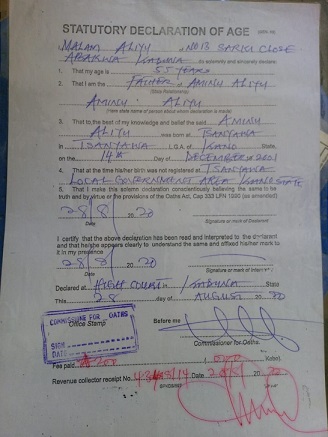 STATUTORY DECLARATION OF AGE
I MALAM ALIYU of NO 13 SARKI CLOSE
ABAKWA / KADUNA do solemnly and sincerely declare:
1. That my age is 55 YEARS
2. That I am the FATHER of AMINU ALIYU
(State Relationship)
AMINU ALIYU
(Here state name of person about whom declaration is made)
3. That to the best of my knowledge and belief the said AMINU
ALIYU was born at TSANYAWA
in TSANYAWA L.G.A. of KANO State
on the 14th Day of DECEMBER 2001
4. That at the time his/her birth was not registered at TSANYAWA
LOCAL GOVERNMENT AREA / KANO STATE
5. That I make this solemn declaration conscientiously believing the same to be
truth and by virtue of the provisions of the Oaths Act, Cap 333 LFN 1990 (as amended)
28 8 20 20
Signature or mark of Declarant
I certify that the above declaration has been read and interpreted to the declarant
and that he/she appears clearly to understand the same and affixed his/her mark to
it in my presence
28 8 20 20
Declared at HIGH COURT / KADUNA State
This 28 day of AUGUST 20 20
COMMISSIONER FOR OATHS
Office Stamp
SIGN
DATE
Before me
Commissioner for Oaths.
Fee paid Kobo)
Revenue collector receipt No. Date